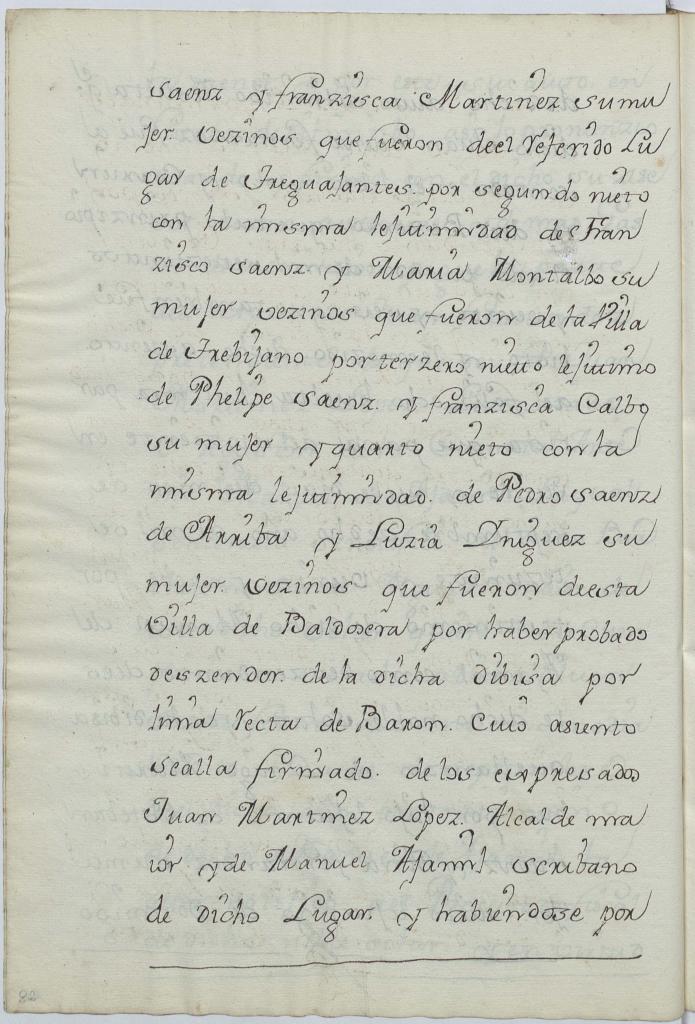 saenz y franzisca Martinez su mu
jer vezinos que fueron de el referido Lu
gar de Treguajantes por segundo nieto
con la misma lejitimidad de Fran
zisco saenz y Maria Montalbo su
mujer vezinos que fueron de la Villa
de Trebijano por terzero nieto lejitimo
de Phelipe saenz y franzisca Calbo
su mujer y quarto nieto con la
misma lejitimidad de Pedro saenz
de Arriba y Luzia Yniguez su
mujer vezinos que fueron de esta
Villa de Baldosera por haber probado
deszender de la dicha dibisa por
linia recta de Baron. Cuio asiento
se alla firmado de los expresados
Juan Martinez Lopez Alcalde ma
ior y de Manuel Ajamil scribano
de dicho Lugar y habiendose por
82